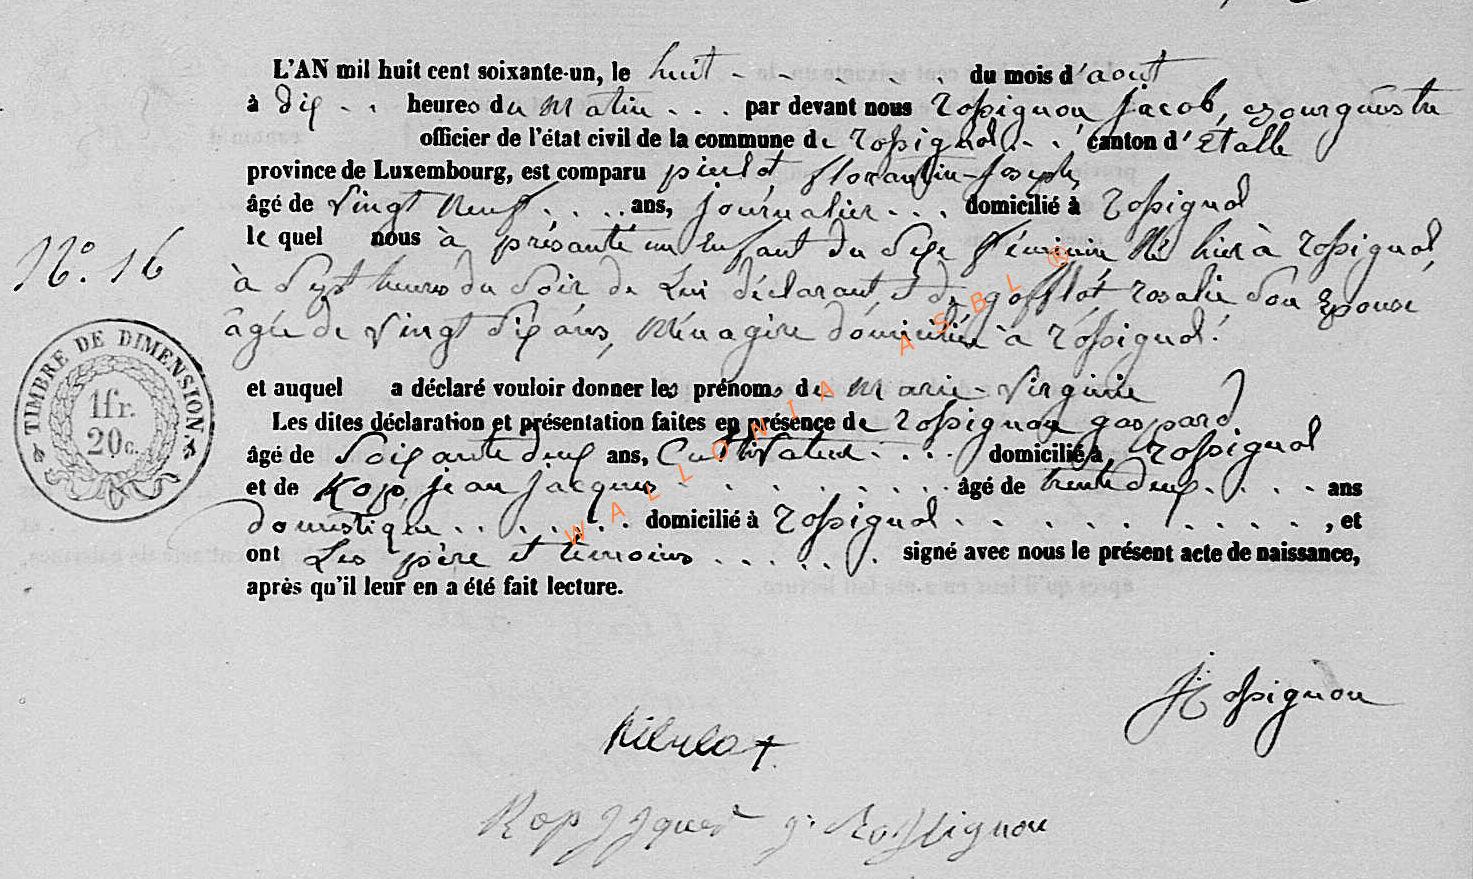 L'AN mil huit cent soixante-un, le huit - - - - - - du mois d'aout
à dix - - heures du Matin - - - par devant nous Rossignon Jacob, Bourguestre
officier de l'état civil de la commune de rossignol - - canton d'Etalle
province de Luxembourg, est comparu pierlot florantin-Joseph,
âgé de Vingt Neuf . . . . ans, Journalier - - - domicilié à Rossignol
le quel nous à présanté un Enfant du Sexe féminin Né hier à Rossignol,
N° 16
à Sept heures du Soir de Lui déclarant, et de gofflot rosalie Son Epouse
âgée de Vingt Six ans, Ménagire domiciliée à Rossignol.
TIMBRE DE DIMENSION
1fr.
20c.
et auquel a déclaré vouloir donner les prénoms de Marie-Virginie
Les dites déclaration et présentation faites en présence de Rossignon gaspard
âgé de Soixante deux ans, Cultivateur - - - - domicilié à Rossignol
et de Kops, jean Jacques - - - - - - - - âgé de trente deux - - - - ans
domestique . . . . . . . domicilié à Rossignol - - - - - - - - , et
ont Les père et témoins - - - - - . signé avec nous le présent acte de naissance,
après qu'il leur en a été fait lecture.
WALLONIA ASBL ®
J Rossignon
Kop g: Rossignon